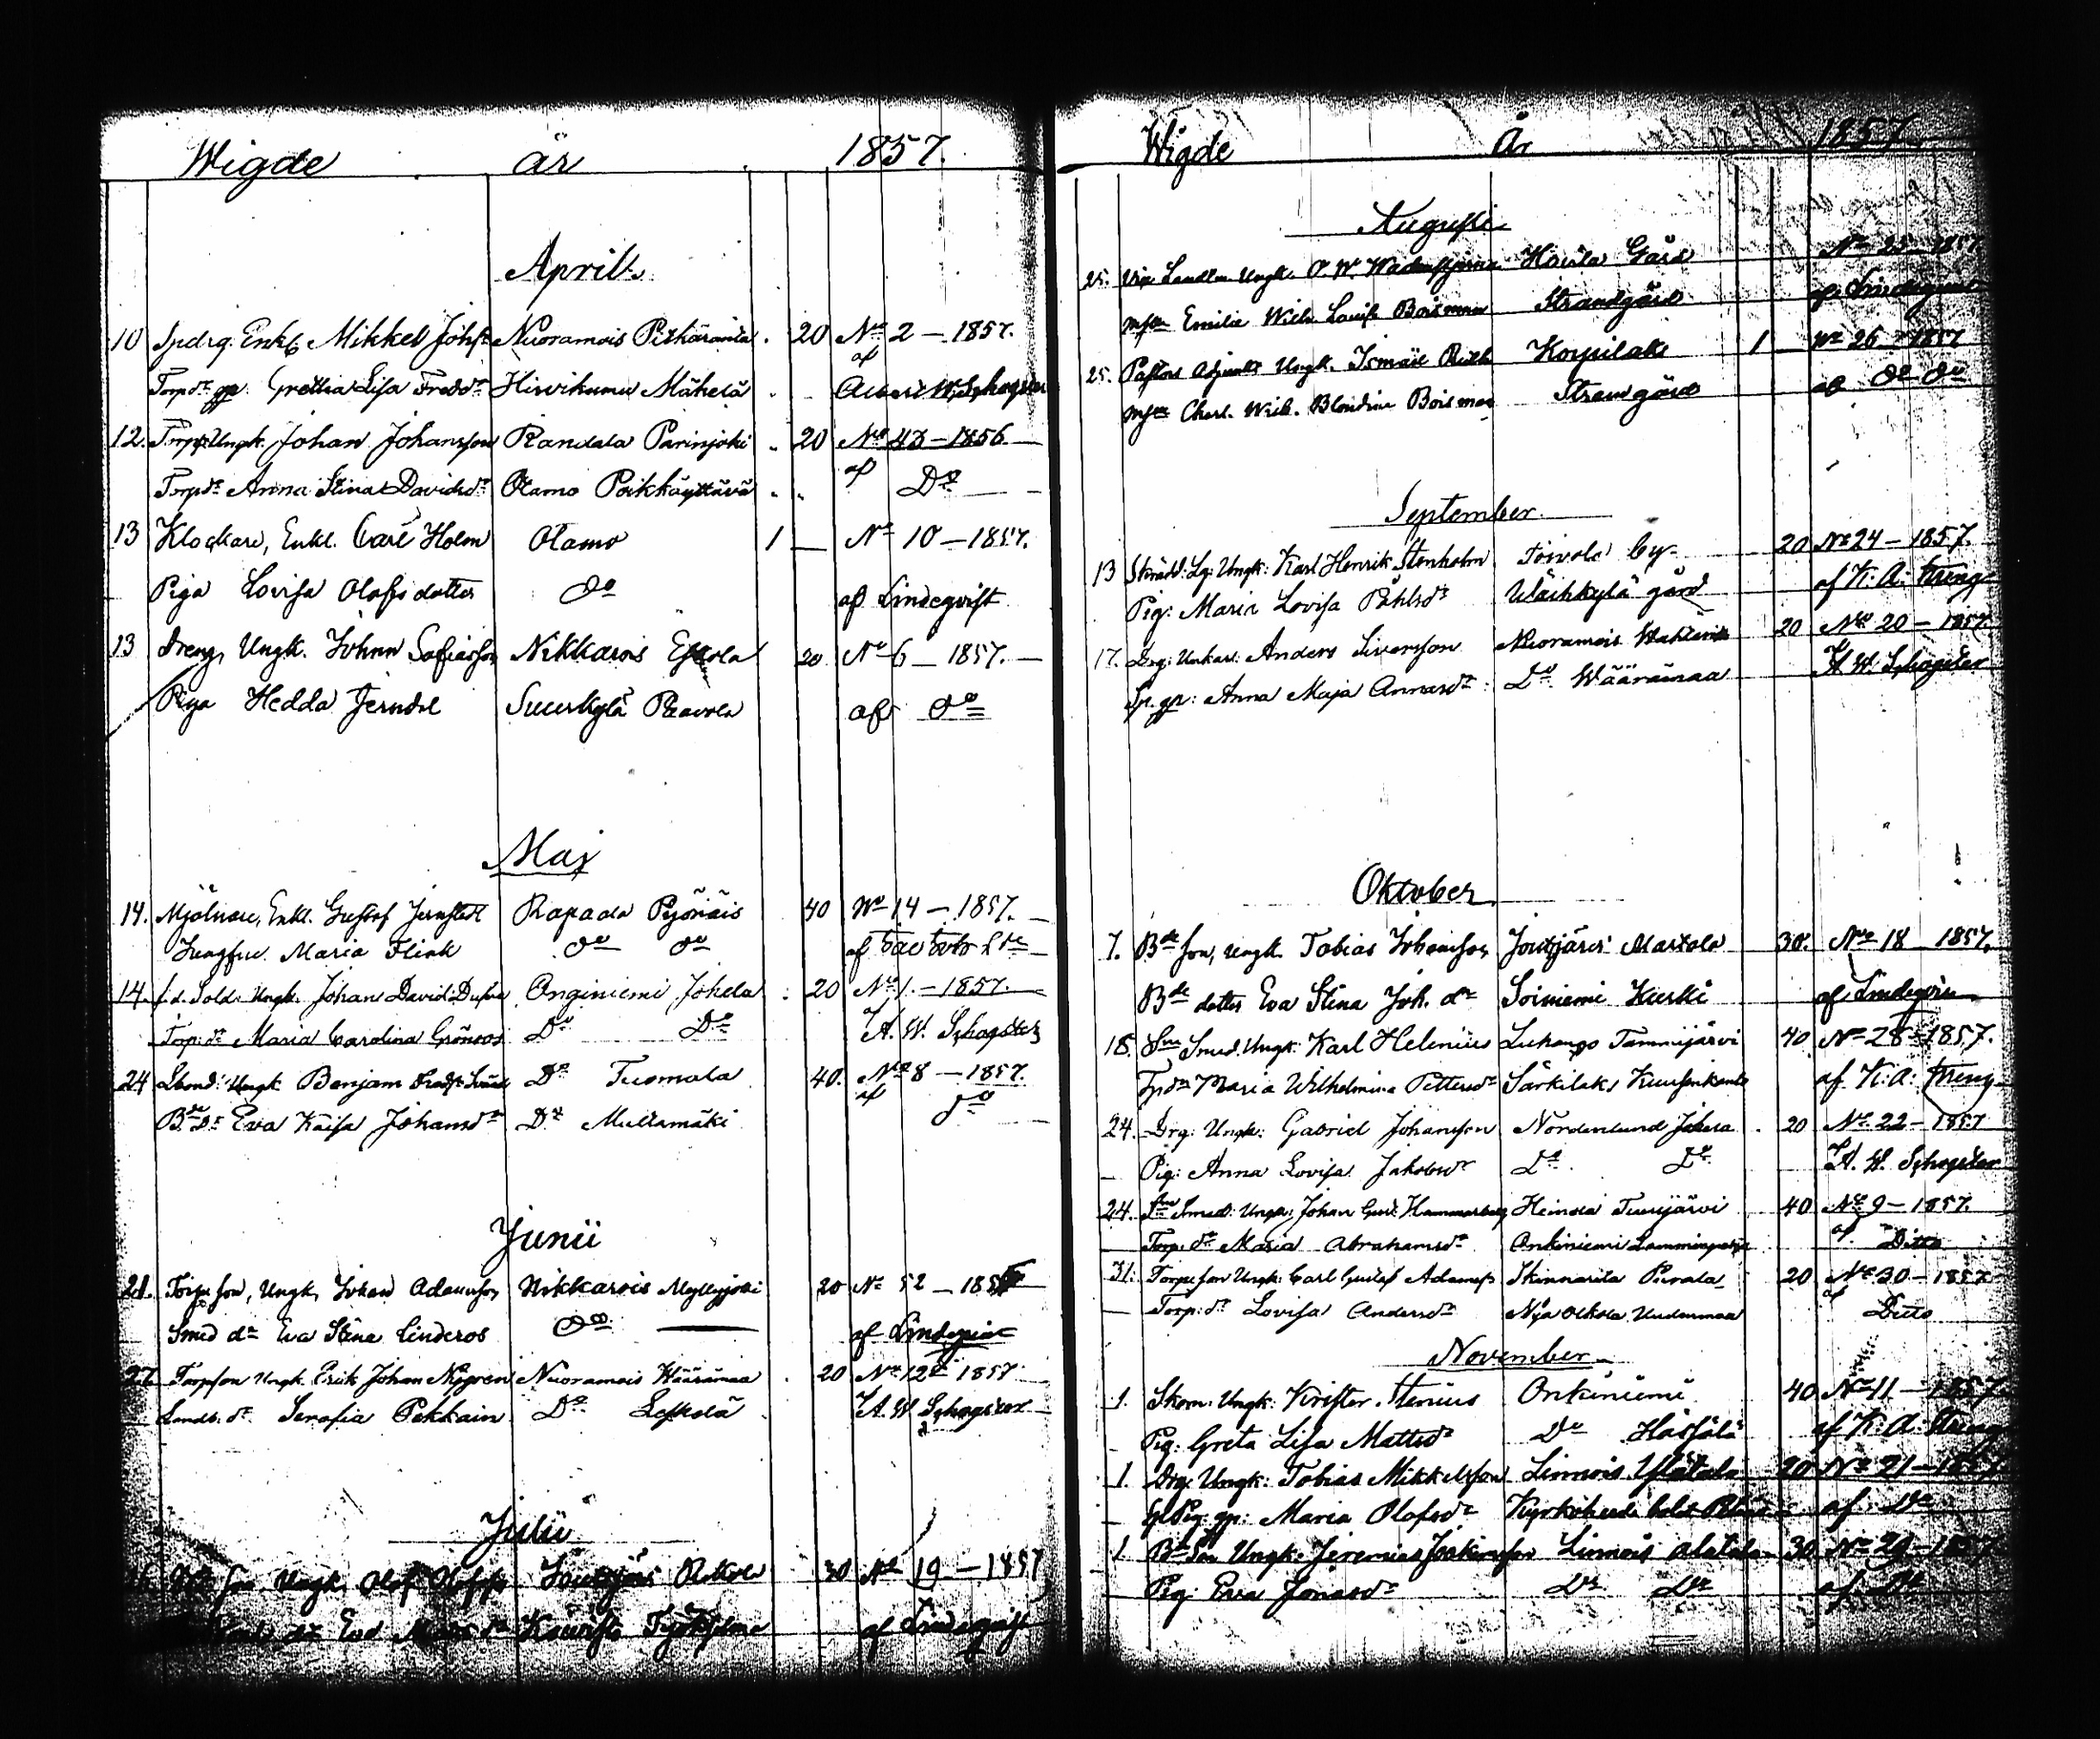 Wigde år 1857.
April
10 Spdrg. Enkl. Mikkel Johs: Nuoramois Pitkäranta 20 No 2 – 1857.
Torp.dr gp. Gretha Lisa Fredr.dr Hirvikumu Mähelä af Albert W. Schogster
12. Torp. Ungk. Johan Johansson Randala Parinjoki 20 No 43 – 1856
Torp.dr Anna Stina Davidsdr Otamo Poikkäyttävä af Do
13 Klockare, Enkl. Carl Holm Otamo 1 — No 10 – 1857.
Piga Lovisa Olofsdotter do af Lindeqvist
13 Dreng, Ungk. Johan Nikkarois 20 No 6 – 1857.
Piga Hedda Jerndel Suurkylä Paavola af do
Maj
14. Mjölnare, Enkl. Gustof Jernstedt Rapaala Pyöräis 40 No 14 – 1857.
Jungfru Maria Flink do do af
14. f.d. Sold. Ungk. Johan David Dufva Onginiemi Johela 20 No 1. – 1857.
Torp: dr Maria Carolina Grönroos Do Do A. W. Schogster
24 Ungk Benjam Do Tuomala 40. No 8 – 1857.
B.de Dr Eva Kaisa Johansdr Do Multamäki af do
Junii
21. Torpu son, Ungk, Johan Adamsson Nikkarois Myllyjoki 20 No 52 – 185
Smed dr Eva Stina Cinderos do af Lindeqvist
27 Torpson Ungk. Erik Johan Nygren Nuoramois Wäärämaa 20 No 12 – 1857
Landb. dr. Serafia Pekkain Do Leskelä A. W. Schogster
Julii
son Ungk. Olof 30 No 19 – 1857
dr af Lindeqvist
Wigde År 1857.
Augusti
25. Ungk. O W. Gård No 25 – 1857
Emilie Wilh. Lovise Boisman Strandgård af Lindeqvist
25. Pastors Adjunkt Ungk. Ismäel Korpilaks 1 — No 26 – 1857
Charl. Wilh. Blondine Boisman Strandgård af do do
September
13 Skrädd: Lg: Ungk: Karl Henrik Stenholm Toivola by 20 No 24 – 1857.
Pig: Maria Lovisa Påhlsdr Wäihkylä gård af K: A: Streng
17. Drg: Unkarl Anders Siversson Nuoramois 20 No 20 – 1857
Sp. gp: Anna Maja Annasdr Do Wäärämaa A. W. Schogster
Oktober
7. B.de son, Ungk. Tobias Johansson Joutjärvi Martola 30. No 18 – 1857.
B.de dotter Eva Stina Joh. dr Soiniemi Kurki af Lindeqvist
18. Smed. Ungk: Karl Helenius Lukanpo Tammijärvi 40 No 28 – 1857.
Tpdr Maria Wilhelmina Pettersdr Särkilaks af K: A: Streng
24. Drg: Ungk: Gabriel Johansson Nordenlund Johera 20 No 22 – 1857
Pig: Anna Lovisa Jakobsdr Do Do A. W. Schogster
24. Smed: Ungk: Johan Gust. Hammarberg Heinola Tuusjärvi 40 No 9 – 1857.
Torp. dr Maria Abrahamsdr Onkiniemi af Ditto
31. Torpu son Ungk: Carl Gustaf Adamss. Skinnarila Pirola 20 No 30 – 1857
Torp: dr Lovisa Andersdr Nya Olkola Uudenmaa af Ditto
November
1. Skom. Ungk: Krister Stenius Onkiniemi 40 No 11 – 1857
Pig: Greta Lisa Mattsdr Do af K: A: Streng
1. Drg. Ungk: Tobias Mikkelsson Linnois Ylätalo 20 No 21 – 1857
gp: Maria Olofsdr af Do
1 B.de Son Ungk. Jeremias Joakimsson Linnois Alatalo 30 No 29 – 1857
Pig: Eva Jonasdr Do Do af Do